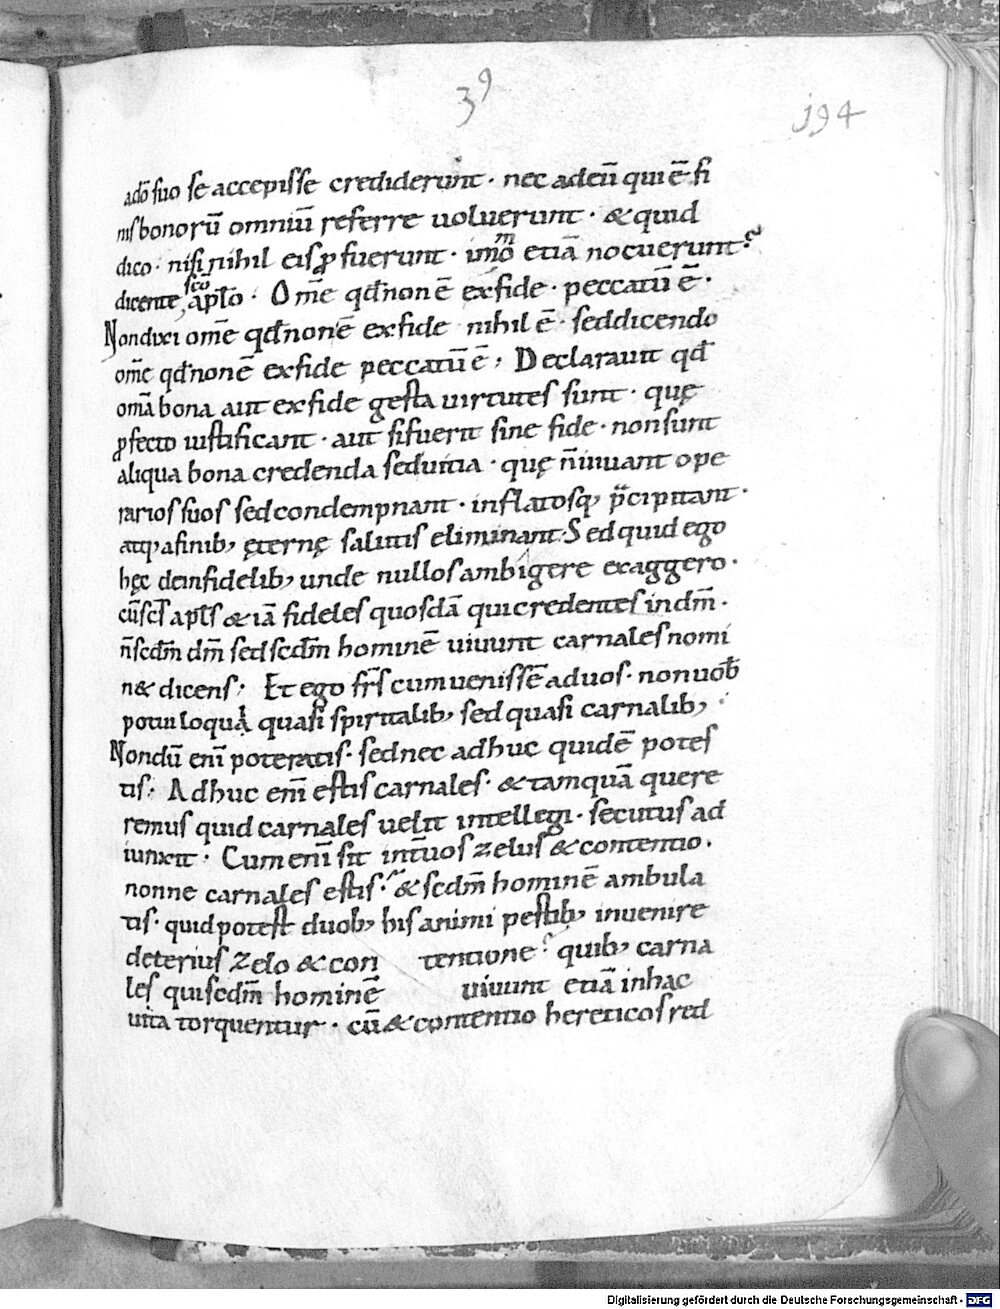 39
194
adō suo se accepisse crediderunt · nec ad eū qui ē fi
nis bonorū omniū referre uoluerunt · & quid
dico · nisi nihil eis ꝓfuerunt · immo etiā nocuerunt?
dicente sco aplo · Om̄e qđ non ē ex fide · peccatū ē ·
Non dixi om̄e qđ non ē ex fide nihil ē · sed dicendo
om̄e qđ non ē ex fide peccatū ē ; Declarauit qđ
om̄a bona aut ex fide gesta uirtutes sunt · quę
ꝓfecto iustificant · aut si fuerit sine fide · non sunt
aliqua bona credenda sed uitia · quę n̄ iuuant ope
rarios suos sed condempnant · inflatosq; p̄cipitant ·
atq; a finib; ęternę salutis eliminant · Sed quid ego
hęc de infidelib; unde nullos ambigere exaggero ·
cū scs apls & iā fideles quosdā qui credentes in dm̄ ·
n̄ scdm̄ dm̄ sed scdm̄ hominē uiuunt carnales nomi
n& dicens ; Et ego frs cum uenissē ad uos · non uob̄
potui loquā quasi spiritalib; sed quasi carnalib;
Nondū enī poteratis · sed nec adhuc quidē potes
tis ; Adhuc enī estis carnales · & tamquā quere
remus quid carnales uelit intellegi · secutus ad
iunxit · Cum enī sit int̄ uos zelus & contentio ·
nonne carnales estis · & scdm̄ hominē ambula
tis · quid potest duob; his animi pestib; inuenire
deterius zelo & con tentione? quib; carna
les qui scdm̄ hominē uiuunt etiā in hac
uita torquentur · cū & contentio hereticos red
Digitalisierung gefördert durch die Deutsche Forschungsgemeinschaft - DFG